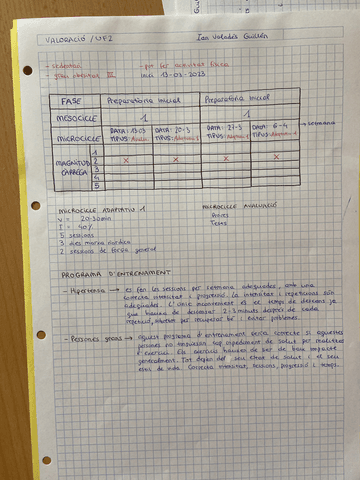 VALORACIÓ / UF2 Ian Valadés Guillén
- Sedentari - pot fer activitat física
- grau obesitat III inici 13-03-2023
FASE Preparatoria Inicial Preparatoria Inicial
MESOCICLE 1 1
MICROCICLE DATA: 13-03 DATA: 20-3 DATA: 27-3 DATA: 6-4 → setmana
TIPUS: TIPUS: TIPUS: TIPUS:
MAGNITUD CÀRREGA 1
2 X X X X
3
4
5
MICROCICLE ADAPTATIU 1 MICROCICLE AVALUACIÓ
V = 20-30min Proves
I = 40% Tests
5 sessions
3 dies marxa nòrdica
2 sessions de força general
PROGRAMA D'ENTRENAMENT
- Hipertensa → es fan les sessions per setmana adequades, amb una
correcte intensitat i progressió. La intensitat i repeticions són
adequades. L'únic inconvenient és el temps de descans ja
que hauria de descansar 2-3 minuts després de cada
repetició, per recuperar bé i evitar problemes.
- Persones grans → aquest programa d'entrenament seria correcte si aquestes
persones no tinguessin cap impediment de salut per realitzar
l'exercici. Els exercicis haurien de ser de baix impacte
generalment. Tot depèn del seu estat de salut i el seu
estil de vida. Correcta intensitat, sessions, progressió i temps.